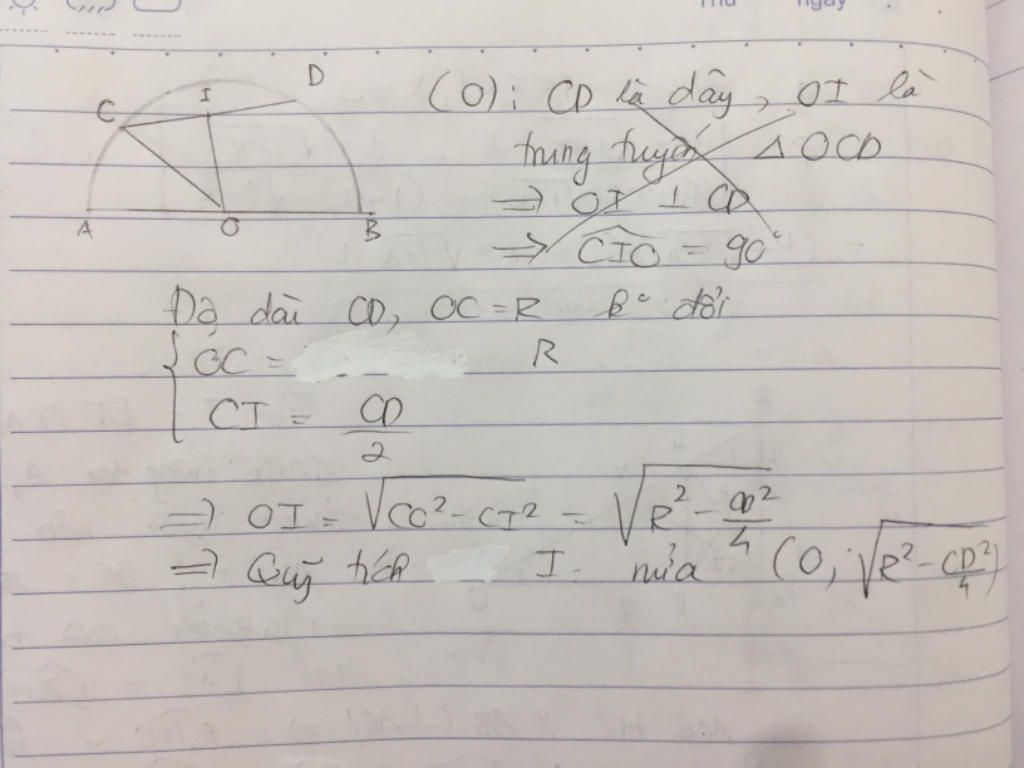 Thứ ngày
D
I
C
A O B
(O): CD là dây, OI là
trung tuyến Δ OCD
=> OI ⊥ CD
=> \widehat{CIO} = 90°
Độ dài CD, OC = R k° đổi
{ OC = R
CI = CD/2
=> OI = √(CO² - CI²) = √(R² - CD²/4)
=> Quỹ tích I. nửa (O; √(R² - CD²/4))